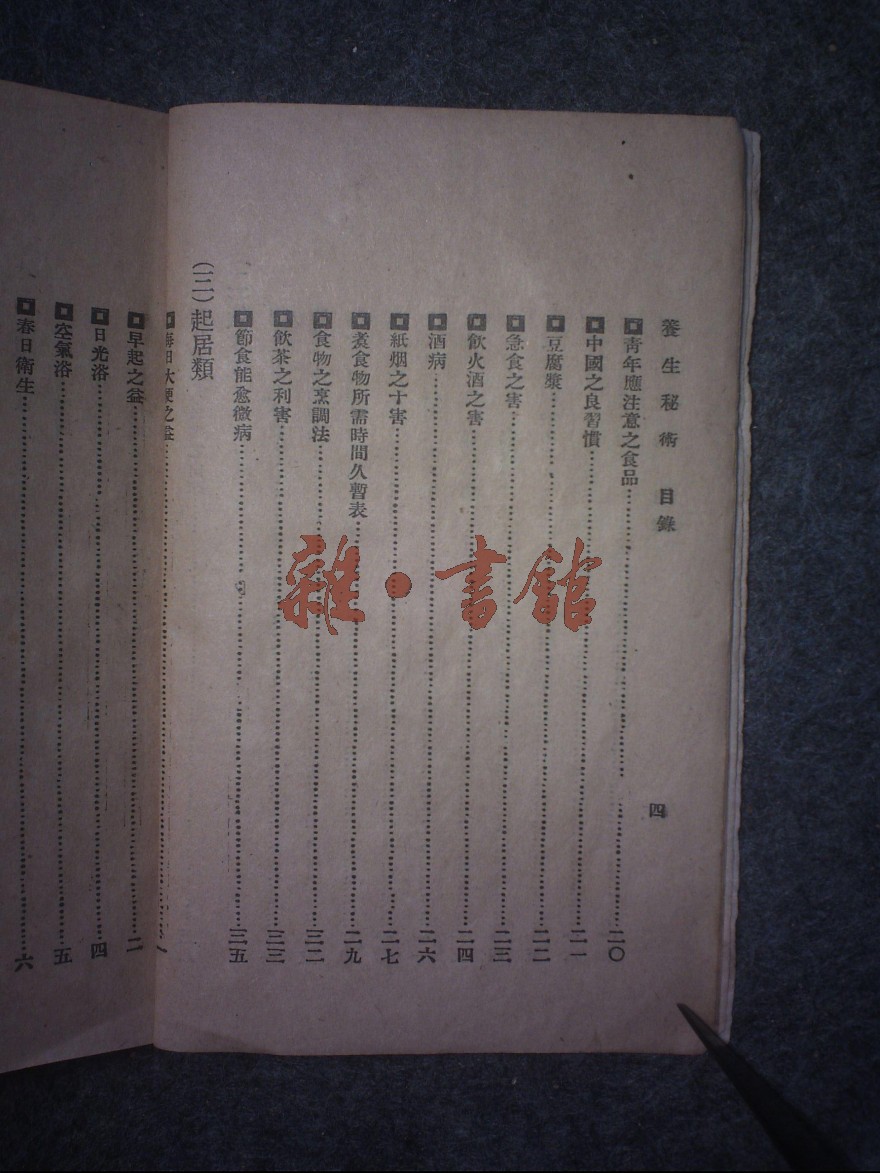 養生秘術 目錄 四
青年應注意之食品 二〇
中國之良習慣 二一
豆腐漿 二二
急食之害 二三
飲火酒之害 二四
酒病 二六
紙烟之十害 二七
煮食物所需時間久暫表 二九
食物之烹調法 三二
飲茶之利害 三三
節食能愈微病 三五
(三)起居類
每日大便之益 一
早起之益 二
日光浴 四
空氣浴 五
春日衛生 六
雜·書館